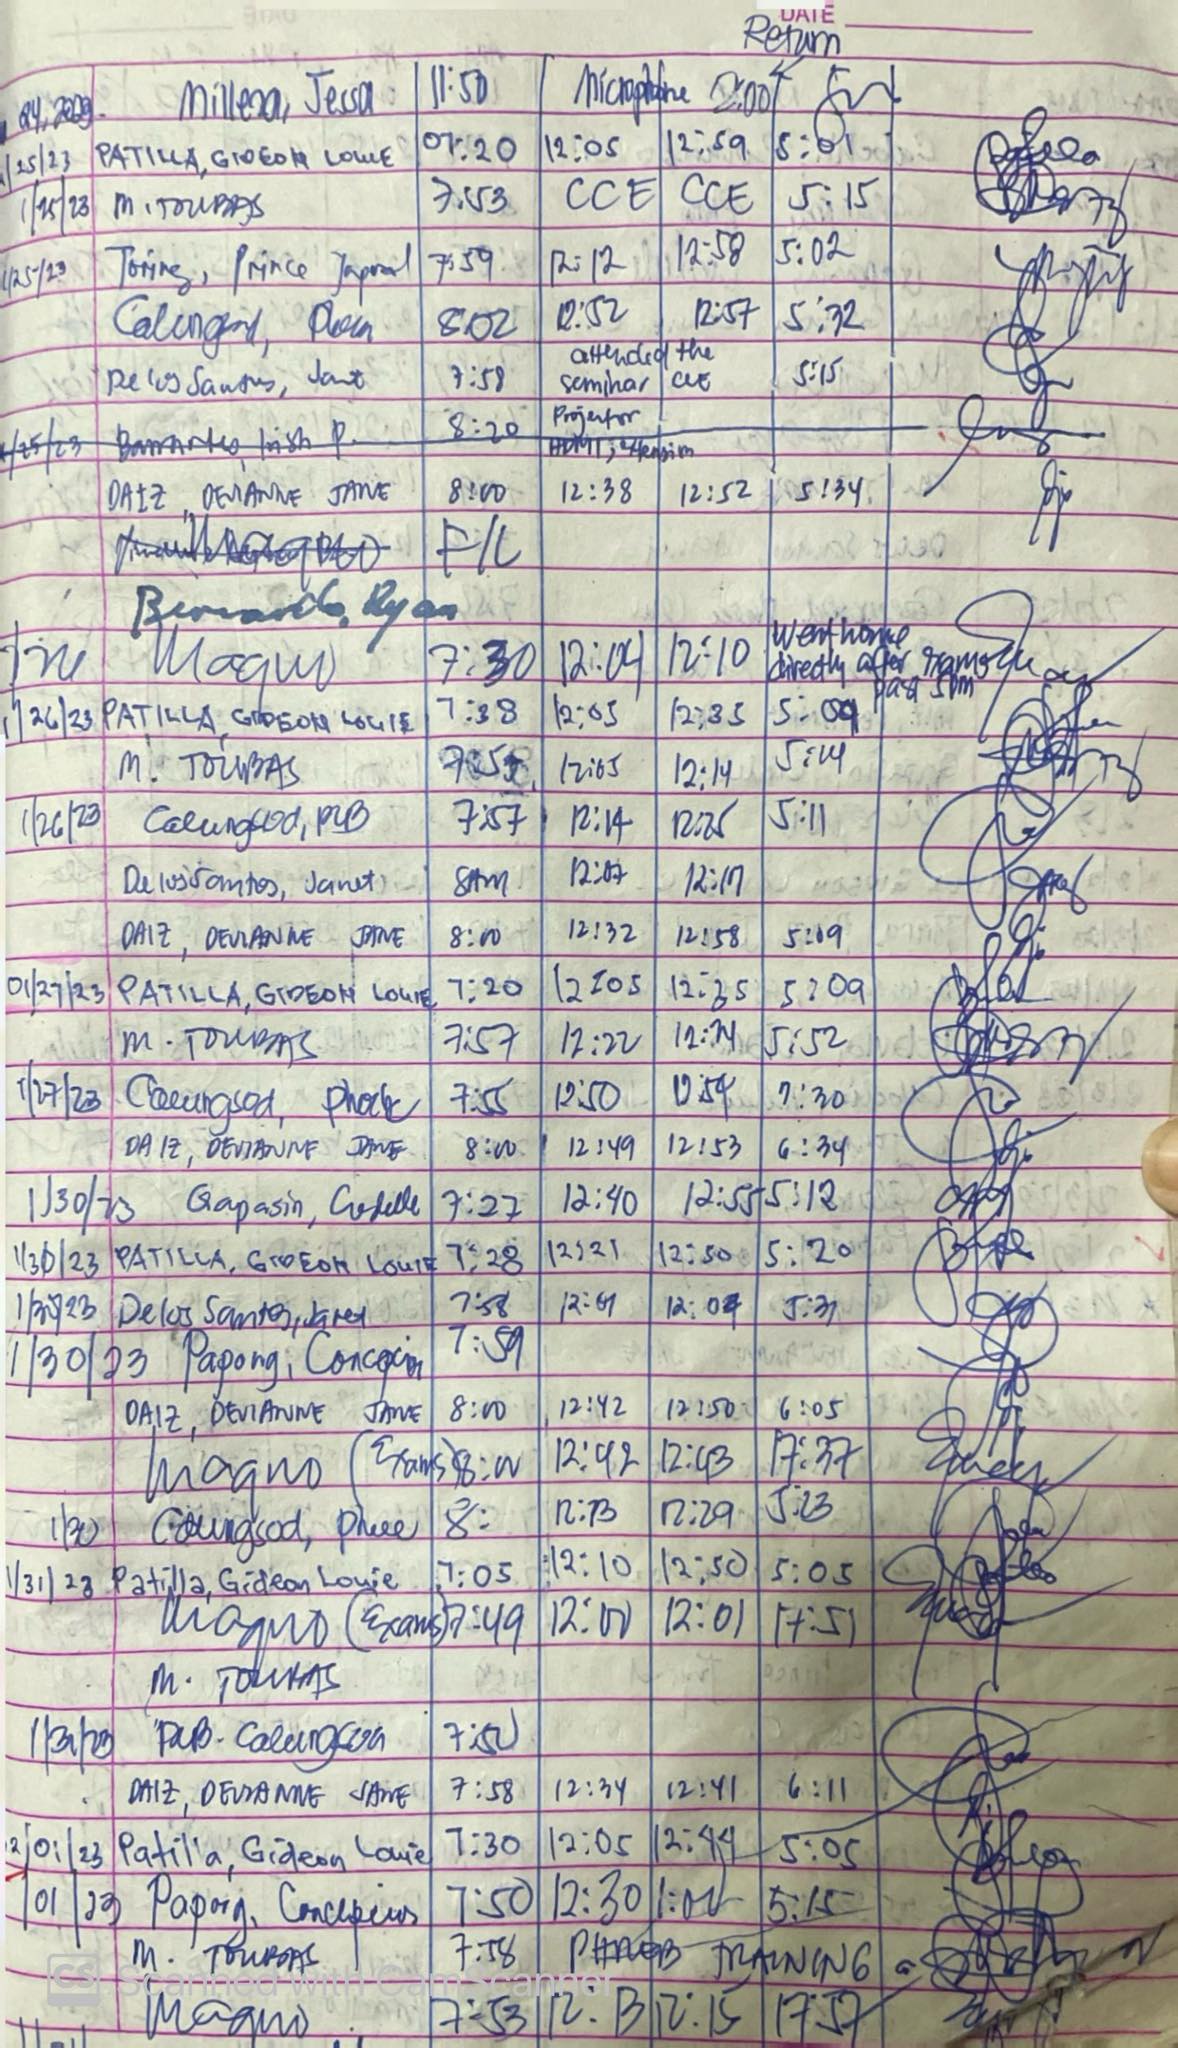 DATE
Return
Millena, Jessa 11:50 Microphone 2:00
1/25/23 PATILLA, GIDEON LOUIE 07:20 12:05 12:59 5:01
1/25/23 M. TOUBAS 7:53 CCE CCE 5:15
1/25/23 Toring, Prince 7:59 12:12 12:58 5:02
Calungsod, 8:02 12:52 12:57 5:32
attended the
Delos Santos, Janet 7:58 seminar CCE 5:15
Projector
1/25/23 Barrantes, Irish P. 8:20 HDMI, extension
DAIZ, DEVIANNE JANE 8:00 12:38 12:52 5:34
F/L
Bernardo, Ryan
went home
Magno 7:30 12:04 12:10 directly after exams
past 5pm
1/26/23 PATILLA, GIDEON LOUIE 7:38 12:05 12:35 5:09
M. TOUBAS 12:05 12:14 5:14
1/26/23 Calungsod, PLB 7:57 12:14 12:25 5:11
Delos Santos, Janet 8AM 12:07 12:17
DAIZ, DEVIANNE JANE 8:00 12:32 12:58 5:09
01/27/23 PATILLA, GIDEON LOUIE 7:20 12:05 12:35 5:09
M. TOUBAS 7:57 12:22 12:24 5:52
1/27/23 Calungsod, 7:55 12:50 12:54 7:30
DAIZ, DEVIANNE JANE 8:00 12:49 12:53 6:34
1/30/23 Gapasin, 7:27 12:40 12:55 5:12
1/30/23 PATILLA, GIDEON LOUIE 7:28 12:21 12:50 5:20
1/30/23 Delos Santos, Janet 7:58 12:01 12:04 5:31
1/30/23 Papong, Concepcion 7:59
DAIZ, DEVIANNE JANE 8:00 12:42 12:50 6:05
Magno (Exams) 8:00 12:42 12:43 17:37
1/30 Calungsod, 8: 12:23 12:29 5:23
1/31/23 Patilla, Gideon Louie 7:05 12:10 12:50 5:05
Magno (Exams) 7:49 12:00 12:01 17:51
M. TOUBAS
1/31/23 PLB. Calungsod 7:50
DAIZ, DEVIANNE JANE 7:58 12:34 12:41 6:11
2/01/23 Patilla, Gideon Louie 7:30 12:05 12:44 5:05
/01/23 Papong, Concepcion 7:50 12:30 5:15
M. TOUBAS 7:58 TRAINING
CS Scanned with CamScanner
Magno 7:53 12:13 12:15 17:57